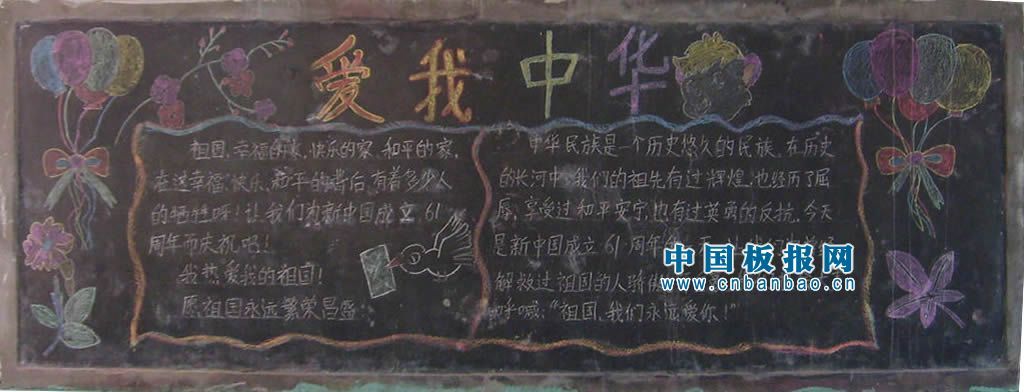 爱我中华
祖国,幸福的家,快乐的家,和平的家,
在这幸福、快乐、和平的背后,有着多少人
的牺牲呀!让我们为新中国成立61
周年而庆祝吧!
我热爱我的祖国!
愿祖国永远繁荣昌盛
中华民族是一个历史悠久的民族。在历史
的长河中,我们的祖先有过辉煌,也经历了屈
辱,享受过和平安宁,也有过英勇的反抗。今天
是新中国成立61周年
解救过祖国的人骄傲
呼喊:"祖国,我们永远爱你!"
中国板报网
www.cnbanbao.cn